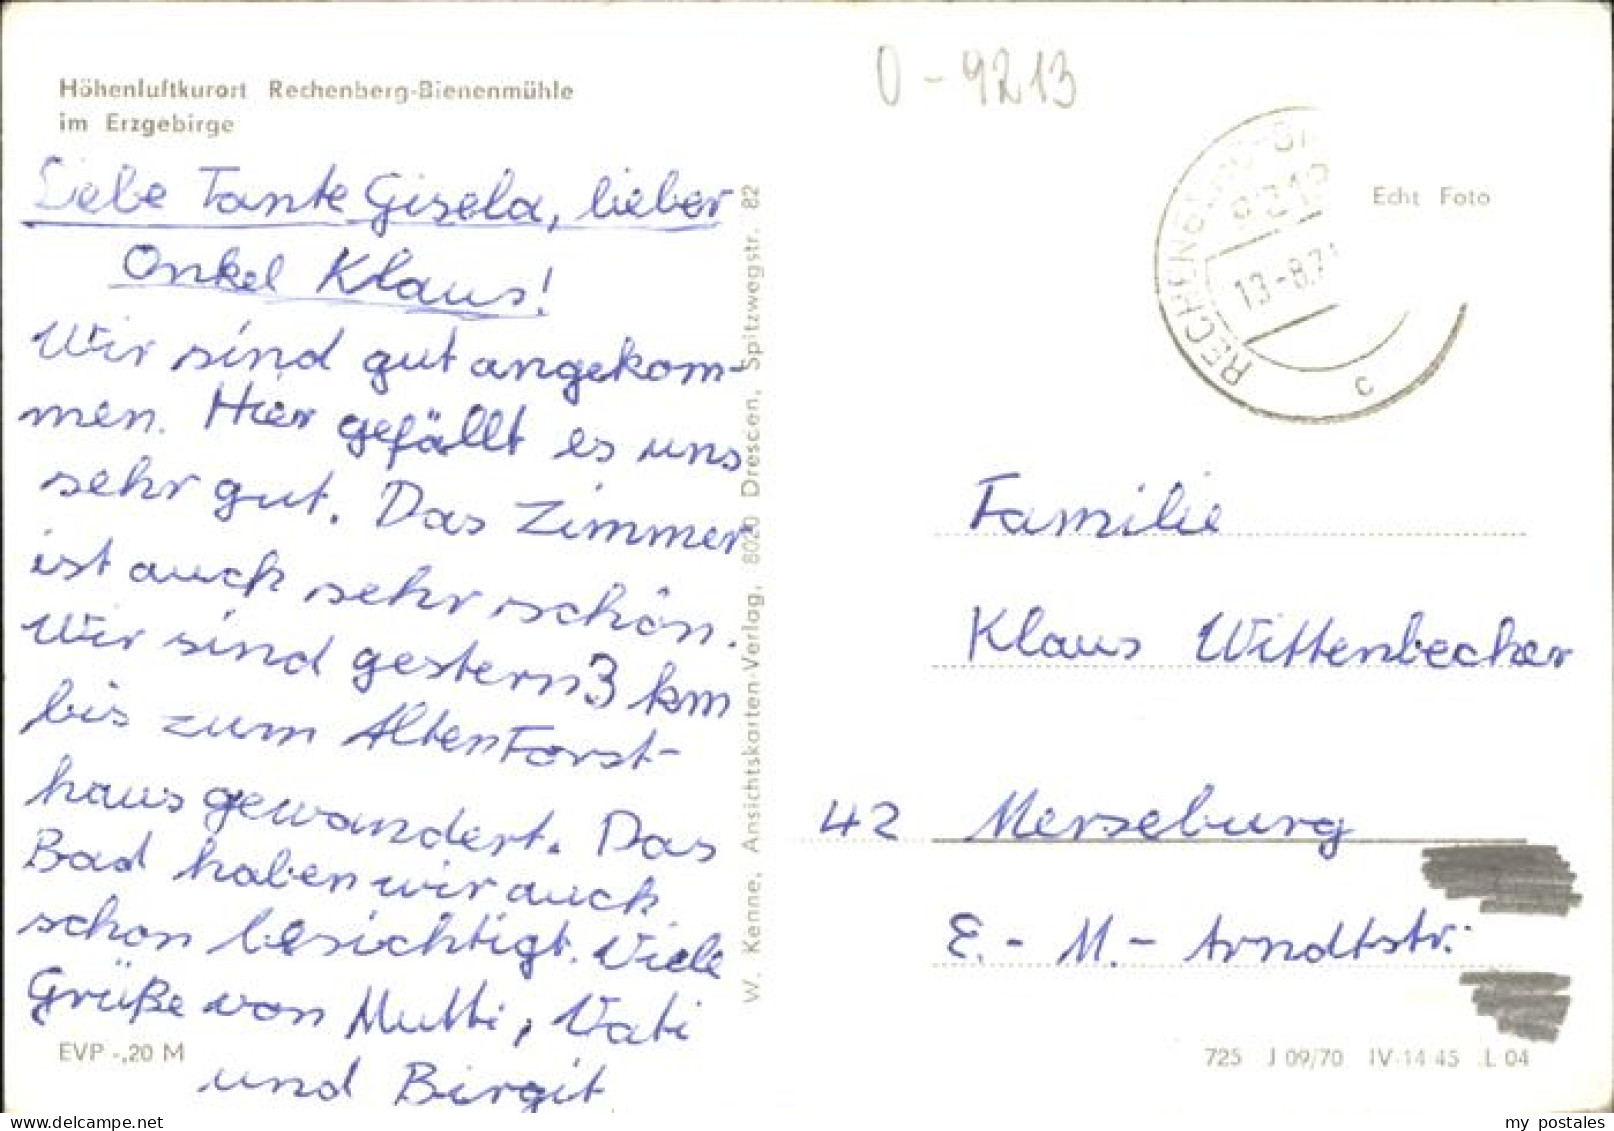 Höhenluftkurort Rechenberg-Bienenmühle
im Erzgebirge
Liebe Tante Gisela, lieber
Onkel Klaus!
Wir sind gut angekom-
men. Hier gefällt es uns
sehr gut. Das Zimmer
ist auch sehr schön.
Wir sind gestern 3 km
bis zum Alten Forst-
haus gewandert. Das
Bad haben wir auch
schon besichtigt. Viele
Grüße von Mutti, Vati
und Birgit
EVP -,20 M
W. Kenne, Ansichtskarten-Verlag, 8020 Dresden, Spitzwegstr. 82
0-9213
RECHENBERG-BI
9213
13-8.71
c
Echt Foto
Familie
Klaus Wittenbecher
42 Merseburg
E.-M.-Arndtstr.
725 J 09/70 IV-14 45 L 04
my postales